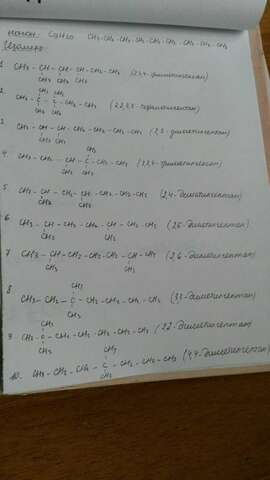 нонан: C9H20 CH3-CH2-CH2-CH2-CH2-CH2-CH2-CH2-CH3
Изомеры:
1. CH3 - CH - CH - CH - CH2 - CH3 (2,3,4-триметилгексан)
CH3 CH3 CH3
CH3 CH3
2. CH3 - C - C - CH2 - CH3 (2,2,3,3-тетраметилпентан)
CH3 CH3
3. CH3 - CH - CH - CH2 - CH2 - CH2 - CH3 (2,3-диметилгептан)
CH3 CH3
CH3
4. CH3 - CH2 - CH - C - CH2 - CH3
CH3 CH3
5. CH3 - CH - CH2 - CH - CH2 - CH2 - CH3 (2,4-диметилгептан)
CH3 CH3
6. CH3 - CH - CH2 - CH2 - CH - CH2 - CH3 (2,5-диметилгептан)
CH3 CH3
7. CH3 - CH - CH2 - CH2 - CH2 - CH - CH3 (2,6-диметилгептан)
CH3 CH3
CH3
8. CH3 - CH2 - C - CH2 - CH2 - CH2 - CH3 (3,3-диметилгептан)
CH3
CH3
9. CH3 - C - CH2 - CH2 - CH2 - CH2 - CH3 (2,2-диметилгептан)
CH3
CH3
10. CH3 - CH2 - CH2 - C - CH2 - CH2 - CH3 (4,4-диметилгептан)
CH3